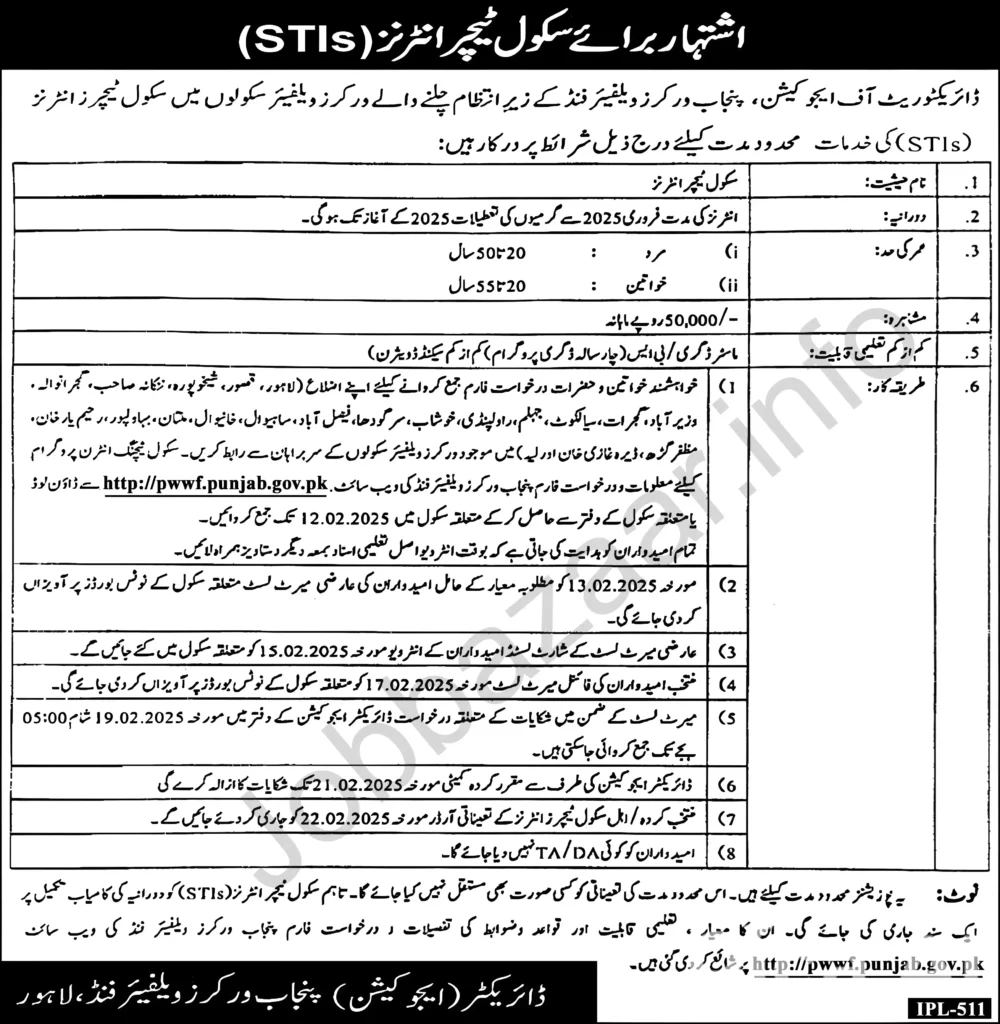 اشتہار برائے سکول ٹیچر انٹرنز (STIs)
ڈائریکٹوریٹ آف ایجوکیشن، پنجاب ورکرز ویلفیئر فنڈ کے زیر انتظام چلنے والے ورکرز ویلفیئر سکولوں میں سکول ٹیچرز انٹرنز
(STIs) کی خدمات محدود مدت کیلئے درج ذیل شرائط پر درکار ہیں:
1. نام حیثیت: سکول ٹیچر انٹرنز
2. دورانیہ: انٹرنز کی مدت فروری 2025 سے گرمیوں کی تعطیلات 2025 کے آغاز تک ہوگی۔
3. عمر کی حد: i) مرد : 20 تا 50 سال
ii) خواتین : 20 تا 55 سال
4. مشاہرہ: 50,000/- روپے ماہانہ
5. کم از کم تعلیمی قابلیت: ماسٹر ڈگری/ بی ایس (چار سالہ ڈگری پروگرام) کم از کم سیکنڈ ڈویژن)
6. طریقہ کار: 1) خواہشمند خواتین و حضرات درخواست فارم جمع کروانے کیلئے اپنے اضلاع (لاہور، قصور، شیخوپورہ، ننکانہ صاحب، گجرانوالہ،
وزیر آباد، گجرات، سیالکوٹ، جہلم، راولپنڈی، خوشاب، سرگودھا، فیصل آباد، ساہیوال، خانیوال، ملتان، بہاولپور، رحیم یار خان،
مظفر گڑھ، ڈیرہ غازی خان اور لیہ) میں موجود ورکرز ویلفیئر سکولوں کے سربراہان سے رابطہ کریں۔ سکول ٹیچنگ انٹرن پروگرام
کیلئے معلومات و درخواست فارم پنجاب ورکرز ویلفیئر فنڈ کی ویب سائٹ۔ http://pwwf.punjab.gov.pk سے ڈاؤن لوڈ
یا متعلقہ سکول کے دفتر سے حاصل کر کے متعلقہ سکول میں 12.02.2025 تک جمع کروائیں۔
تمام امیدواران کو ہدایت کی جاتی ہے کہ بوقت انٹرویو اصل تعلیمی اسناد بمعہ دیگر دستاویز ہمراہ لائیں۔
2) مورخہ 13.02.2025 کو مطلوبہ معیار کے حامل امیدواران کی عارضی میرٹ لسٹ متعلقہ سکول کے نوٹس بورڈز پر آویزاں
کر دی جائے گی۔
3) عارضی میرٹ لسٹ کے شارٹ لسٹڈ امیدواران کے انٹرویو مورخہ 15.02.2025 کو متعلقہ سکول میں کئے جائیں گے۔
4) منتخب امیدواران کی فائنل میرٹ لسٹ مورخہ 17.02.2025 کو متعلقہ سکول کے نوٹس بورڈز پر آویزاں کر دی جائے گی۔
5) میرٹ لسٹ کے ضمن میں شکایات کے متعلقہ درخواست ڈائریکٹر ایجوکیشن کے دفتر میں مورخہ 19.02.2025 شام 05:00
بجے تک جمع کروائی جاسکتی ہیں۔
6) ڈائریکٹر ایجوکیشن کی طرف سے مقرر کردہ کمیٹی مورخہ 21.02.2025 تک شکایات کا ازالہ کرے گی
7) منتخب کردہ/ اہل سکول ٹیچرز انٹرنز کے تعیناتی آرڈر مورخہ 22.02.2025 کو جاری کر دئے جائیں گے۔
8) امیدواران کو کوئی TA/DA نہیں دیا جائے گا۔
نوٹ: یہ پوزیشنز محدود مدت کیلئے ہیں۔ اس محدود مدت کی تعیناتی کو کسی صورت بھی مستقل نہیں کیا جائے گا۔ تاہم سکول ٹیچر انٹرنز (STIs) کو دورانیہ کی کامیاب تکمیل پر
ایک سند جاری کی جائے گی۔ ان کا معیار، تعلیمی قابلیت اور قواعد وضوابط کی تفصیلات و درخواست فارم پنجاب ورکرز ویلفیئر فنڈ کی ویب سائٹ
http://pwwf.punjab.gov.pk پر شائع کر دی گئی ہیں۔
ڈائریکٹر (ایجوکیشن) پنجاب ورکرز ویلفیئر فنڈ، لاہور
IPL-511
Jobbazaar.info